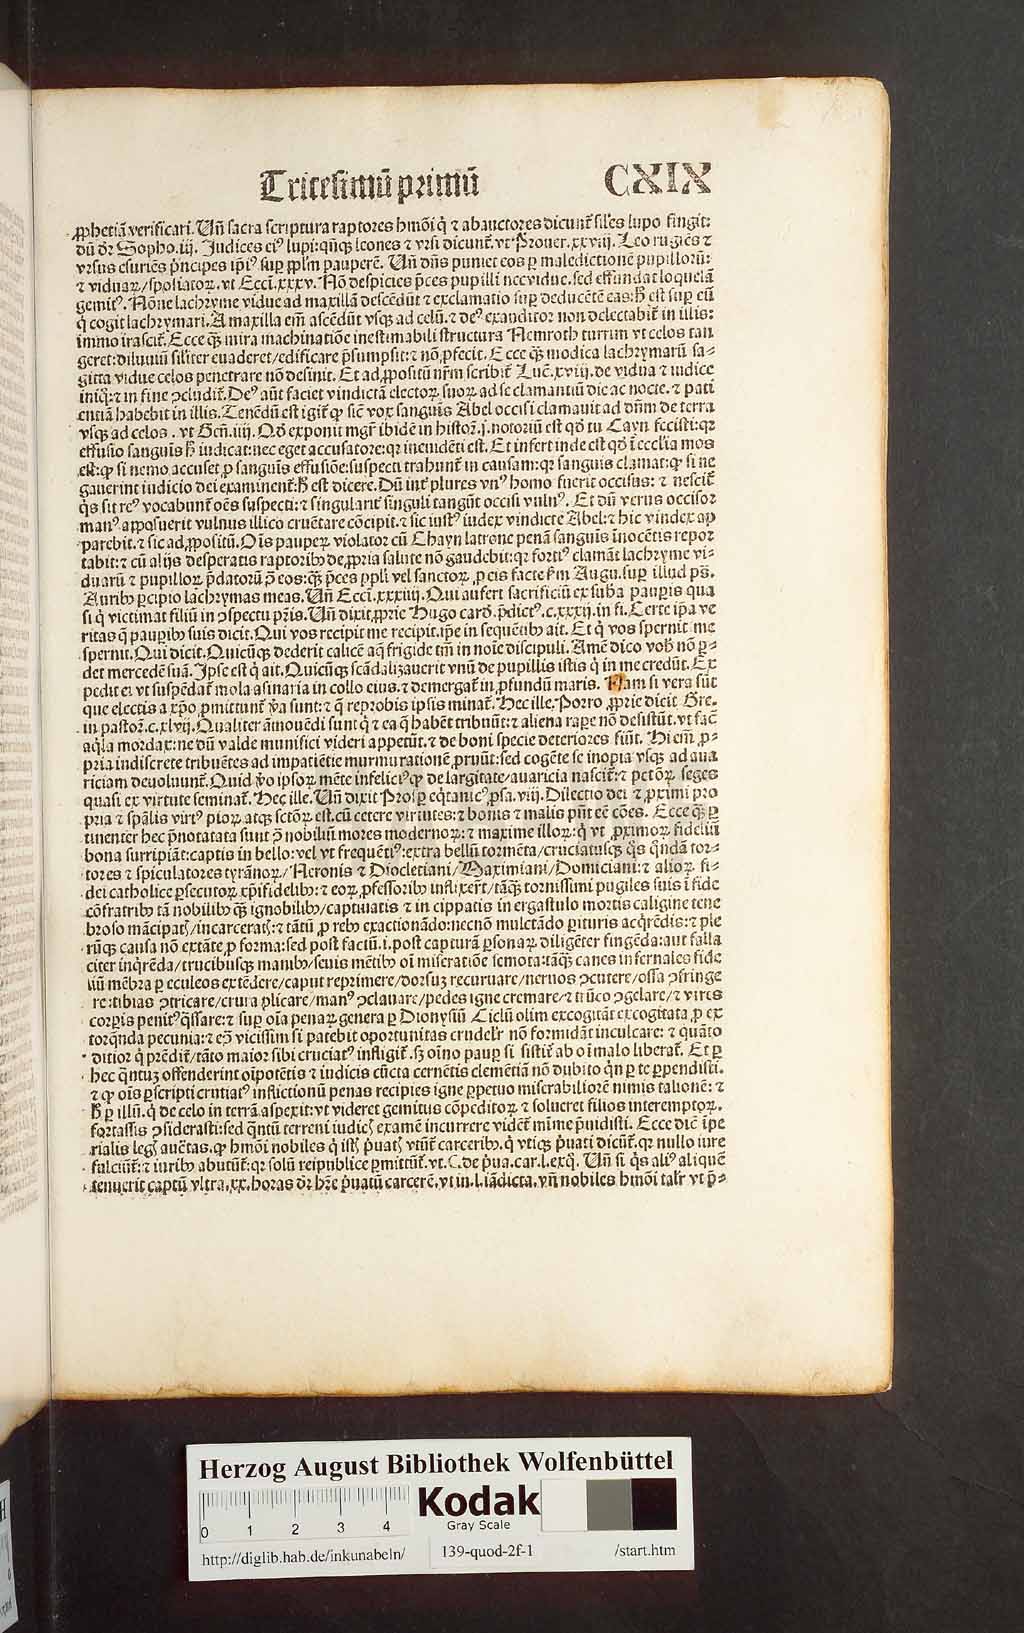 Tricesimū primū CXIX
ꝓphetiā verificari. Uñ sacra scriptura raptores hmōi q̇ ⁊ abanctores dicunt᷑ sił'es lupo fingit:
dū dr̄ Sopho.iij. Judices eiꝰ lupi: qñqꝫ leones ⁊ vrsi dicunt᷑. vt Prouer.xxviij. Leo rugiēs ⁊
vrsus esuriēs p̄ncipes ip̄iꝰ suꝑ ꝓplm̄ pauperē. Uñ dñs puniet eos ꝑ maledictionē pupilloꝝ:
⁊ viduaꝝ/spoliatoꝝ. vt Ecci.xxxv. Nō despicies p̄ces pupilli nec vidue. sed effundat loquelā
gemitꝰ. Nōne lachryme vidue ad maxillā descēdūt ⁊ exclamatio suꝑ deducētē eas: h̄ est suꝑ eū
q̇ cogit lachrymari. A maxilla em̄ ascēdūt vsqꝫ ad celū. ⁊ deꝰ exauditor non delectabit᷑ in illis:
immo irascit᷑. Ecce qꝫ mira machinatiōe inestimabili structura Nemroth turrim vt celos tan
geret: diluuiū sił'iter euaderet/edificare p̄sumpsit: ⁊ nō ꝓfecit. Ecce qꝫ modica lachrymarū sa⸗
gitta vidue celos penetrare nō desinit. Et ad ꝓpositū nr̄m scribit᷑ Luē.xviij. de vidua ⁊ iudice
iniq̇: ⁊ in fine ↄcludit᷑. Deꝰ aūt faciet vindictā electoꝝ suoꝝ ad se clamantiū die ac nocte. ⁊ pati
entiā habebit in illis. Tenēdū est igit᷑ ꝙ sic̄ vox sanguīs Abel occisi clamauit ad dñm de terra
vsqꝫ ad celos. vt Geñ.iiij. Qd̄ exponit mgr̄ ibidē in histor̄.j. notoriū est qd̄ tu Cayn fecisti: qꝛ
effusio sanguīs h̄ iudicat: nec eget accusatore: qꝛ in euidēti est. Et infert inde est qd̄ ī ecclīa mos
est: ꝙ si nemo accuset ꝓ sanguīs effusiōe: suspecti trahunt᷑ in causam: qꝛ sanguis clamat: ꝙ si ne
gauerint iudicio dei examinent᷑: h̄ est dicere. Dū int᷑ plures vnꝰ homo fuerit occisus: ⁊ nescit᷑
q̇s sit reꝰ vocabunt᷑ oēs suspecti: ⁊ singulant᷑ singuli tangūt occisi vulnꝰ. Et dū verus occisor
manꝰ apposuerit vulnus illico cruētare cōcipit. ⁊ sic iustꝰ iudex vindicte Abel: ⁊ hic vindex ap
parebit. ⁊ sic ad ꝓpositū. Oīs pauperꝝ violator cū Chayn latrone penā sanguīs inocētis repor
tabit: ⁊ cū alijs desperatis raptoribꝰ de ꝓpria salute nō gaudebit: qꝛ fortiꝰ clamāt lachryme vi⸗
duarū ⁊ pupilloꝝ p̄datorū ꝓ eos: qꝫ p̄ces ppl̄i vel sanctoꝝ ꝓ eis facte fm̄ Augu. suꝑ illud ps̄.
Auribꝰ ꝑcipio lachrymas meas. Uñ Ecci.xxxiiij. Qui aufert sacrificiū ex sub̄a pauꝑis qua
si q̇ victimat filiū in ↄspectu pr̄is. Uñ dixit ꝓprie Hugo card̄. p̄dictꝰ.c.xxxij. in fi. Certe ip̄a ve
ritas q̄ pauꝑibꝰ suis dicit. Qui vos recipit me recipit. ip̄e in sequētibꝰ ait. Et q̇ vos spernit me
spernit. Qui dicit. Quicūqꝫ dederit calicē aq̄ frigide tm̄ in noīe discipuli. Amē dico vob̄ nō ꝑ⸗
det mercedē suā. Ipse est q̇ ait. Quicūqꝫ scādalizauerit vnū de pupillis istis q̇ in me credūt. Ex
pedit ei vt suspēdat᷑ mola asinaria in collo eius. ⁊ demergat᷑ in ꝓfundū maris. Nam si vera sūt
que electis a xp̄o ꝓmittunt᷑ ꝟa sunt: ⁊ q̄ reprobis ipsis minat᷑. Hec ille. Porro ꝓprie dicit Gre.
in pastor̄.c.xlvij. Qualiter āmouēdi sunt q̇ ⁊ ea q̄ habēt tribuūt: ⁊ aliena raꝑe nō desistūt. vt fac̄
aq̇la mordax: ne dū valde munifici videri appetūt. ⁊ de boni specie deteriores fiūt. Hi em̄ ꝓ⸗
pria indiscrete tribuētes ad impatiētie murmurationē ꝓruūt: sed cogēte se inopia vsqꝫ ad aua
riciam deuoluunt᷑. Quid ꝟo ipsoꝝ mēte infeliciꝰ ꝙ de largitate/auaricia nascit᷑: ⁊ pctōꝝ seges
quasi ex virtute seminat᷑. Hec ille. Uñ dixit Prosꝑ eq̇tanicꝰ ꝓsa.viij. Dilectio dei ⁊ ꝓximi pro
pria ⁊ spālis virtꝰ pioꝝ atqꝫ sctōꝝ est. cū cetere virtutes: ⁊ bonis ⁊ malis pn̄t eē cōes. Ecce qꝫ ꝑ
tinenter hec p̄notatata sunt ꝓ nobiliū mores modernoꝝ: ⁊ maxime illoꝝ: q̇ vt ꝓximoꝝ fideliū
bona surripiāt: captis in bello: vel vt frequētiꝰ: extra bellū tormēta/cruciatusqꝫ q̇s q̄ndā tor⸗
tores ⁊ spiculatores tyrānoꝝ/Neronis ⁊ Diocletiani/Maximiani/Domiciani: ⁊ alioꝝ fi⸗
dei catholice ꝑsecutoꝝ xp̄ifidelibꝰ: ⁊ eoꝝ ꝓfessoribꝰ inflixer̄t/tāqꝫ tornissimi pugiles suis ī fide
cōfratribꝰ tā nobilibꝰ qꝫ ignobilibꝰ/captiuatis ⁊ in cippatis in ergastulo mortis caligine tene
broso mācipatꝭ/incarceratꝭ: ⁊ tātū ꝓ rebꝰ exactionādo: necnō mulctādo ꝑituris acq̇rēdis: ⁊ ple
rūqꝫ causa nō extāte ꝓ forma: sed post factū.i.post capturā ꝑsonaꝝ diligēter fingēda: aut falla
citer inq̇rēda/trucibusqꝫ manibꝰ/seuis mētibꝰ oī miseratiōe semota: tāqꝫ canes infernales fide
liū mēbra ꝑ eculeos extēdere/caput reprimere/dorsuꝫ recuruare/neruos ↄcutere/ossa ↄfringe
re: tibias ↄtricare/crura plicare/manꝰ ↄclauare/pedes igne cremare/⁊ trūco ↄgelare/⁊ vires
corꝑis penitꝰ q̄ssare: ⁊ suꝑ oīa penaꝝ genera ꝑ Dionysiū Cielū olim excogitāt excogitata ꝓ ex
torq̄nda pecunia: ⁊ eꝙ vicissim si patebit oportunitas crudelr̄ nō formidāt inculcare: ⁊ quāto
ditior q̇ prēdit᷑/tāto maior sibi cruciatꝰ infligit᷑. sꝫ oīno pauꝑ si sistit᷑ ab oī malo liberat᷑. Et ꝑ
hec q̄ntuꝫ offenderint oīpotētis ⁊ iudicis cūcta cernētis clemētiā nō dubito q̇n ꝑ te ꝑpendisti.
⁊ ꝙ oīs ꝑscripti crutiatꝰ inflictionū penas recipies igne ꝑpetuo miserabiliorē nimis talionē: ⁊
h̄ ꝑ illū. q̇ de celo in terrā aspexit: vt videret gemitus cōpeditoꝝ ⁊ solueret filios interemptoꝝ.
fortassis ↄsiderasti: sed q̄ntū terreni iudicꝭ examē incurrere vidēt᷑ mīme p̄uidisti. Ecce diē īpe
rialis legꝭ auētas. ꝙ hmōi nobiles q̇ istꝭ ṗuatꝭ vtūt᷑ carceribꝰ. q̇ vtiqꝫ ṗuati dicūt᷑. qꝛ nullo iure
fulciūt᷑: ⁊ iuribꝰ abutūt᷑: qꝛ solū reipublice ꝑmittūt᷑. vt.C.de ṗua.car.l.exq̇. Uñ si q̇s aliꝰ aliquē
tenuerit captū vltra.xx.horas dr̄ hr̄e ṗuatū carcerē. vt in.l.iādicta. vñ nobiles hmōi talr̄ vt p̄⸗
Herzog August Bibliothek Wolfenbüttel
0 1 2 3 4
Kodak
Gray Scale
http://diglib.hab.de/inkunabeln/ 139-quod-2f-1 /start.htm